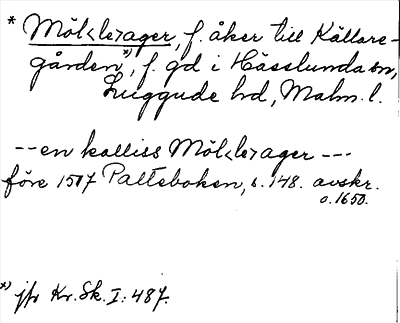 * Möl<le>ager, f. åker till Källare-
gården*), f. gd i Hässlunda sn,
Luggude hd, Malm. l.
-- en kalliss Möl<le>ager ---
före 1517 Palteboken, s. 148. avskr.
o. 1650.
*) jfr Kr. Sk. I: 487.